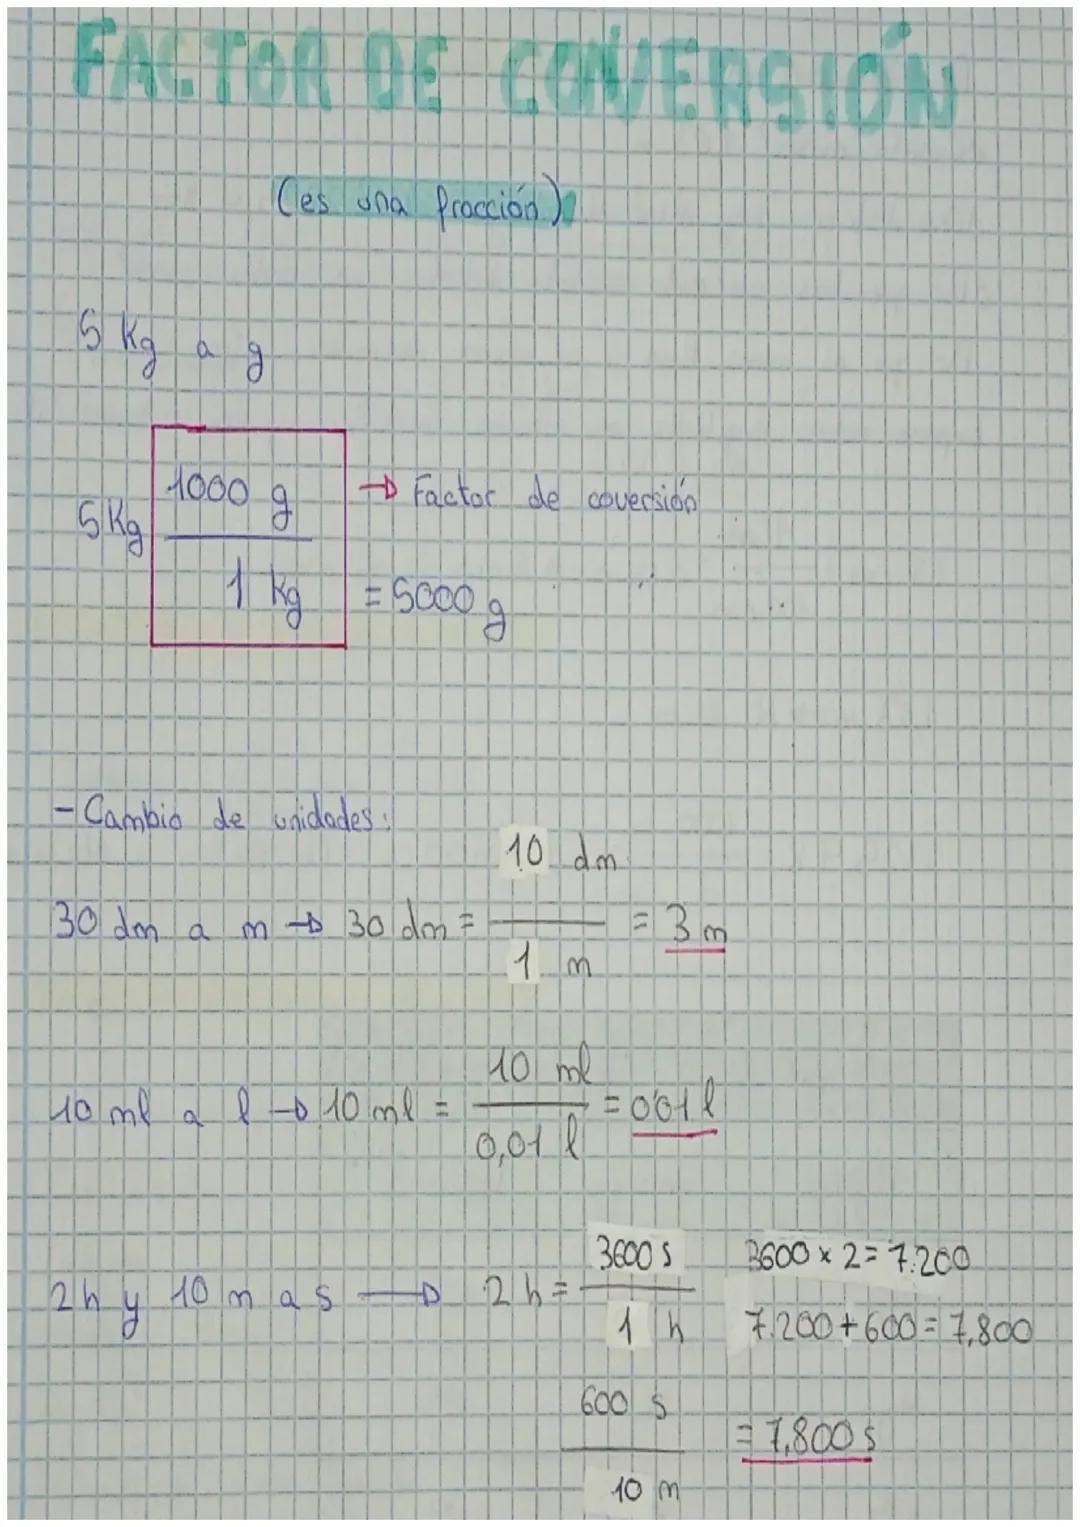 FACTOR DE CONVERSIÓN
(es una fracción)
5 Kg a g
5 Kg 1000 g / 1 kg = 5000 g
→ Factor de coversión
- Cambio de unidades:
30 dm a m → 30 dm = 10 dm / 1 m = 3 m
10 ml a l → 10 ml = 10 ml / 0,01 l = 0'01 l
2h y 10 m a s → 2 h = 3600 s / 1 h
3600 x 2 = 7.200
7.200 + 600 = 7,800
600 s / 10 m = 7,800 s